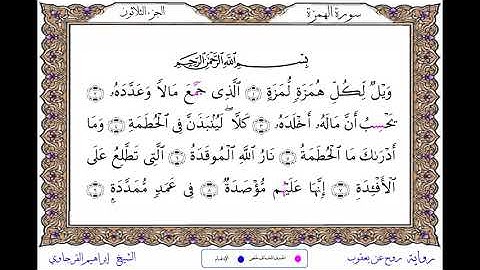 سورة الهمزة
الجزء الثلاثون
بِسْمِ اللَّهِ الرَّحْمَٰنِ الرَّحِيمِ
وَيْلٌ لِكُلِّ هُمَزَةٍ لُمَزَةٍ ١ الَّذِى جَمَّعَ مَالًا وَعَدَّدَهُۥ ٢
يَحْسِبُ أَنَّ مَالَهُۥ أَخْلَدَهُۥ ٣ كَلَّا ۖ لَيُنۢبَذَنَّ فِى الْحُطَمَةِ ٤ وَمَا
أَدْرَىٰكَ مَا الْحُطَمَةُ ٥ نَارُ اللَّهِ الْمُوقَدَةُ ٦ الَّتِى تَطَّلِعُ عَلَى
الْأَفْـِٔدَةِ ٧ إِنَّهَا عَلَيْهُم مُؤْصَدَةٌ ٨ فِى عَمَدٍ مُمَدَّدَةٍۭ ٩
رواية: روح عن يعقوب
الشيخ إبراهيم القرجاوي